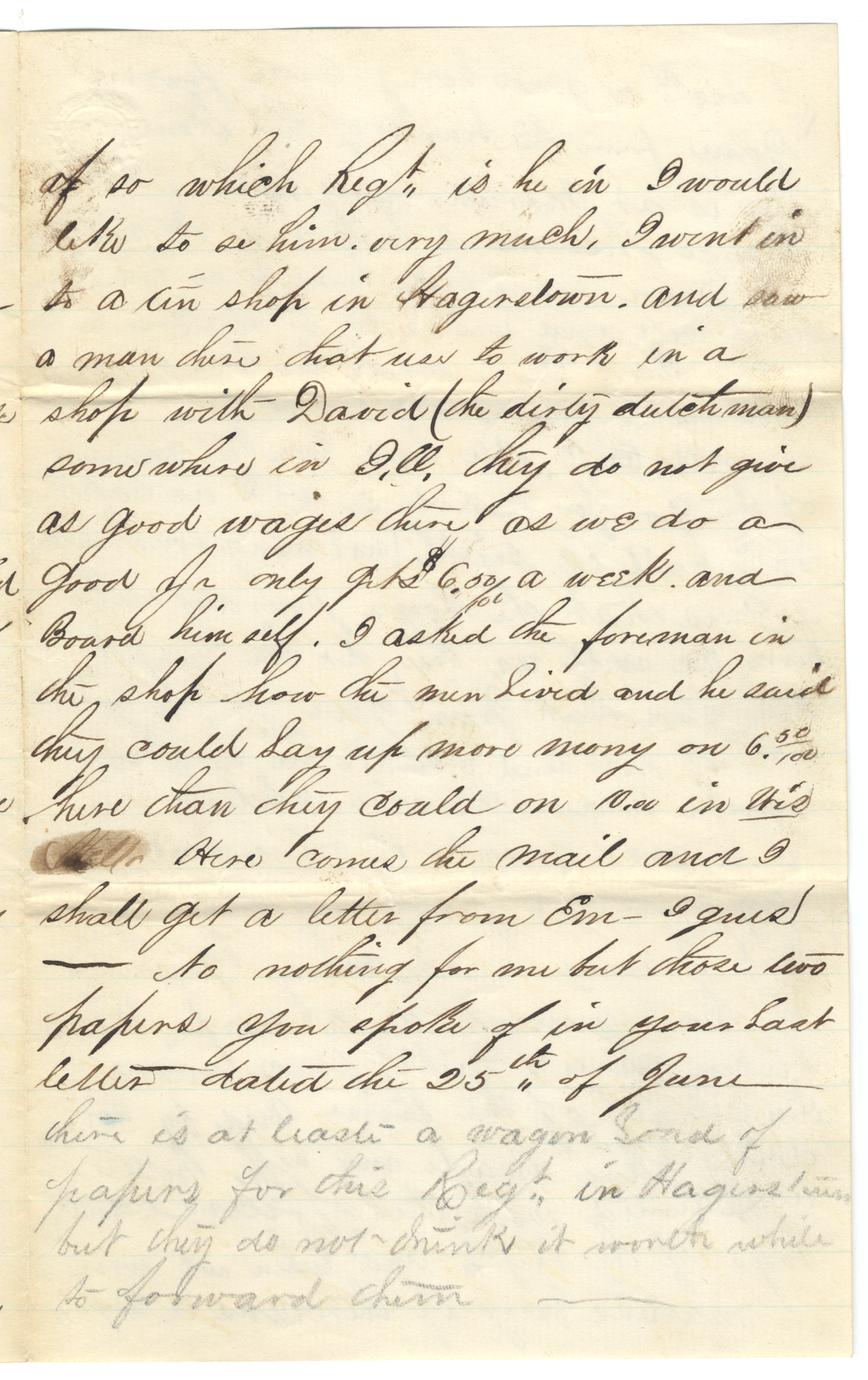 of so which Regt,, is he in I would
like to se him. very much, I went in
to a tin shop in Hagerstown. and saw
a man there that use to work in a
shop with David (the dirty dutchman)
somewhere in Ill, they do not give
as good wages there as we do a
good Jr only gets $6.00/100 a week. and
Board him self. I asked the foreman in
the shop how the men Lived and he said
they could Lay up more mony on 6.50/100
here than they could on in Wis
Here comes the mail and I
shall get a letter from Em – I gues
— No nothing for me but those two
papers you spoke of in your Last
letter dated the 25th,, of June
there is at leaste a wagon Load of
papers for this Regt,, in Hagerstown
but they do not think it worth while
to forward them —